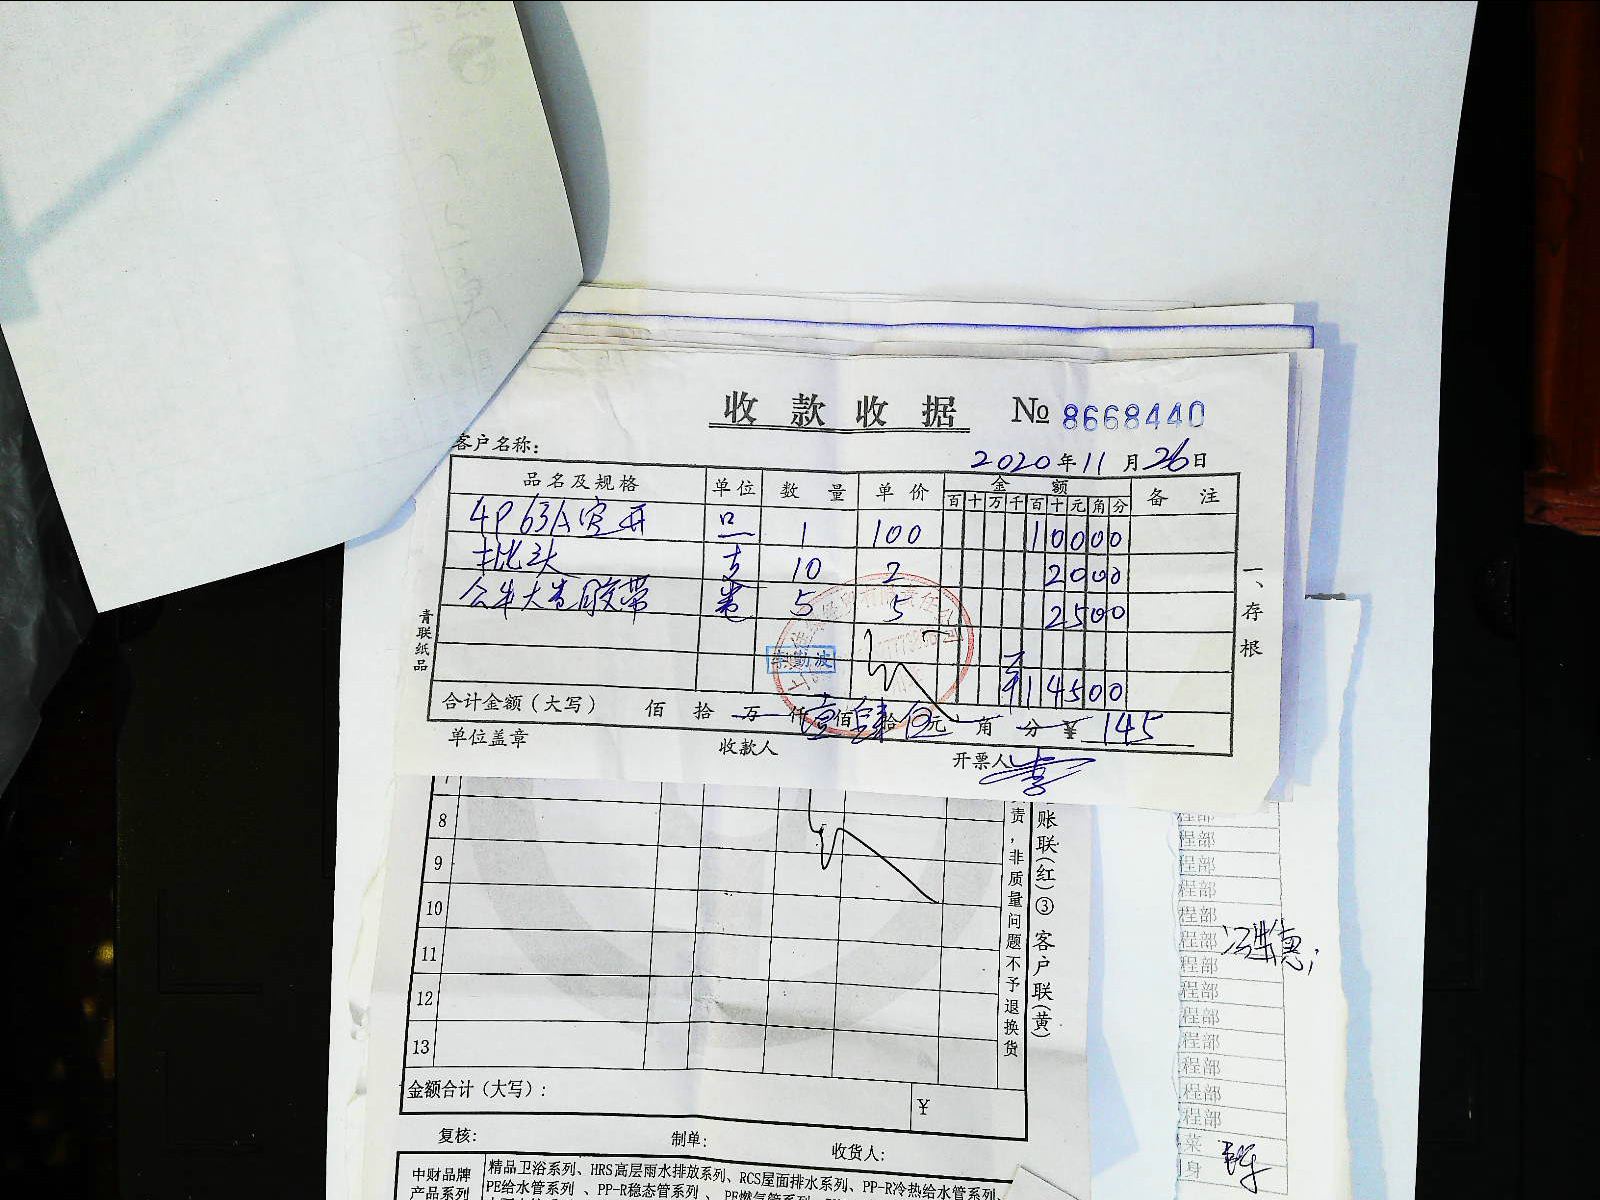 收款收据 № 8668440
客户名称：
2020年11月26日
品名及规格 单位 数量 单价 金额 备注
百 十 万 千 百 十 元 角 分
4P 63A空开 只 1 100 10000
批头 支 10 2 2000
公牛大卷胶带 卷 5 5 2500
李勤波
¥14500
合计金额（大写） 佰 拾 万 仟 壹佰 肆拾 伍元 角 分 ¥ 145
单位盖章 收款人 开票人
青联纸品
一、存根
7
8
9
10
11
12
13
责，非质量问题不予退换货
账联(红)③ 客户联(黄)
金额合计（大写）： ¥
复核： 制单： 收货人：
中财品牌
产品系列
精品卫浴系列、HRS高层雨水排放系列、RCS屋面排水系列、PP-R冷热给水管系列、
PE给水管系列、PP-R稳态管系列、PE燃气管系列、
程部
程部
程部
程部
程部
程部
程部
程部
程部
程部
程部
程部
程部
菜
身